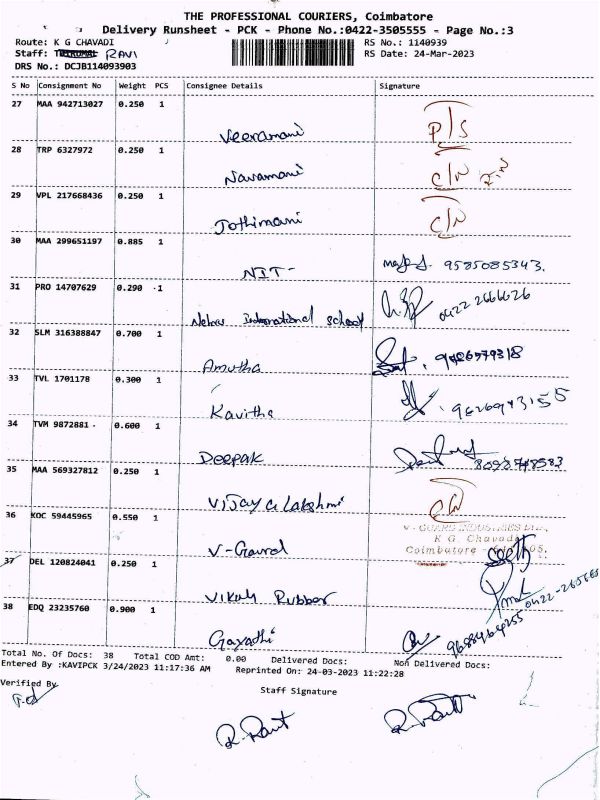 THE PROFESSIONAL COURIERS, Coimbatore
Delivery Runsheet - PCK - Phone No.:0422-3505555 - Page No.:3
Route: K G CHAVADI RS No.: 1140939
Staff: RAVI RS Date: 24-Mar-2023
DRS No.: DCJB114093903
S No Consignment No Weight PCS Consignee Details Signature
27 MAA 942713027 0.250 1
Veeramani P/S
28 TRP 6327972 0.250 1
Navamani C/N
29 VPL 217668436 0.250 1
Jothimani C/N
30 MAA 299651197 0.885 1
NIT- 9585085343.
31 PRO 14707629 0.290 1
Nehru International School 0422 2666626
32 SLM 316388847 0.700 1
Amutha
33 TVL 1701178 0.300 1
Kavitha
34 TVM 9872881 0.600 1
Deepak
35 MAA 569327812 0.250 1
Vijaya Lakshmi
36 KOC 59445965 0.550 1
V-GUARD INDUSTRIES
V-Gaurd K G Chavadi
Coimbatore
37 DEL 120824041 0.250 1
Rubber
38 EDQ 23235760 0.900 1
Gayathi
Total No. Of Docs: 38 Total COD Amt: 0.00 Delivered Docs: Non Delivered Docs:
Entered By :KAVIPCK 3/24/2023 11:17:36 AM Reprinted On: 24-03-2023 11:22:28
Verified By
Staff Signature